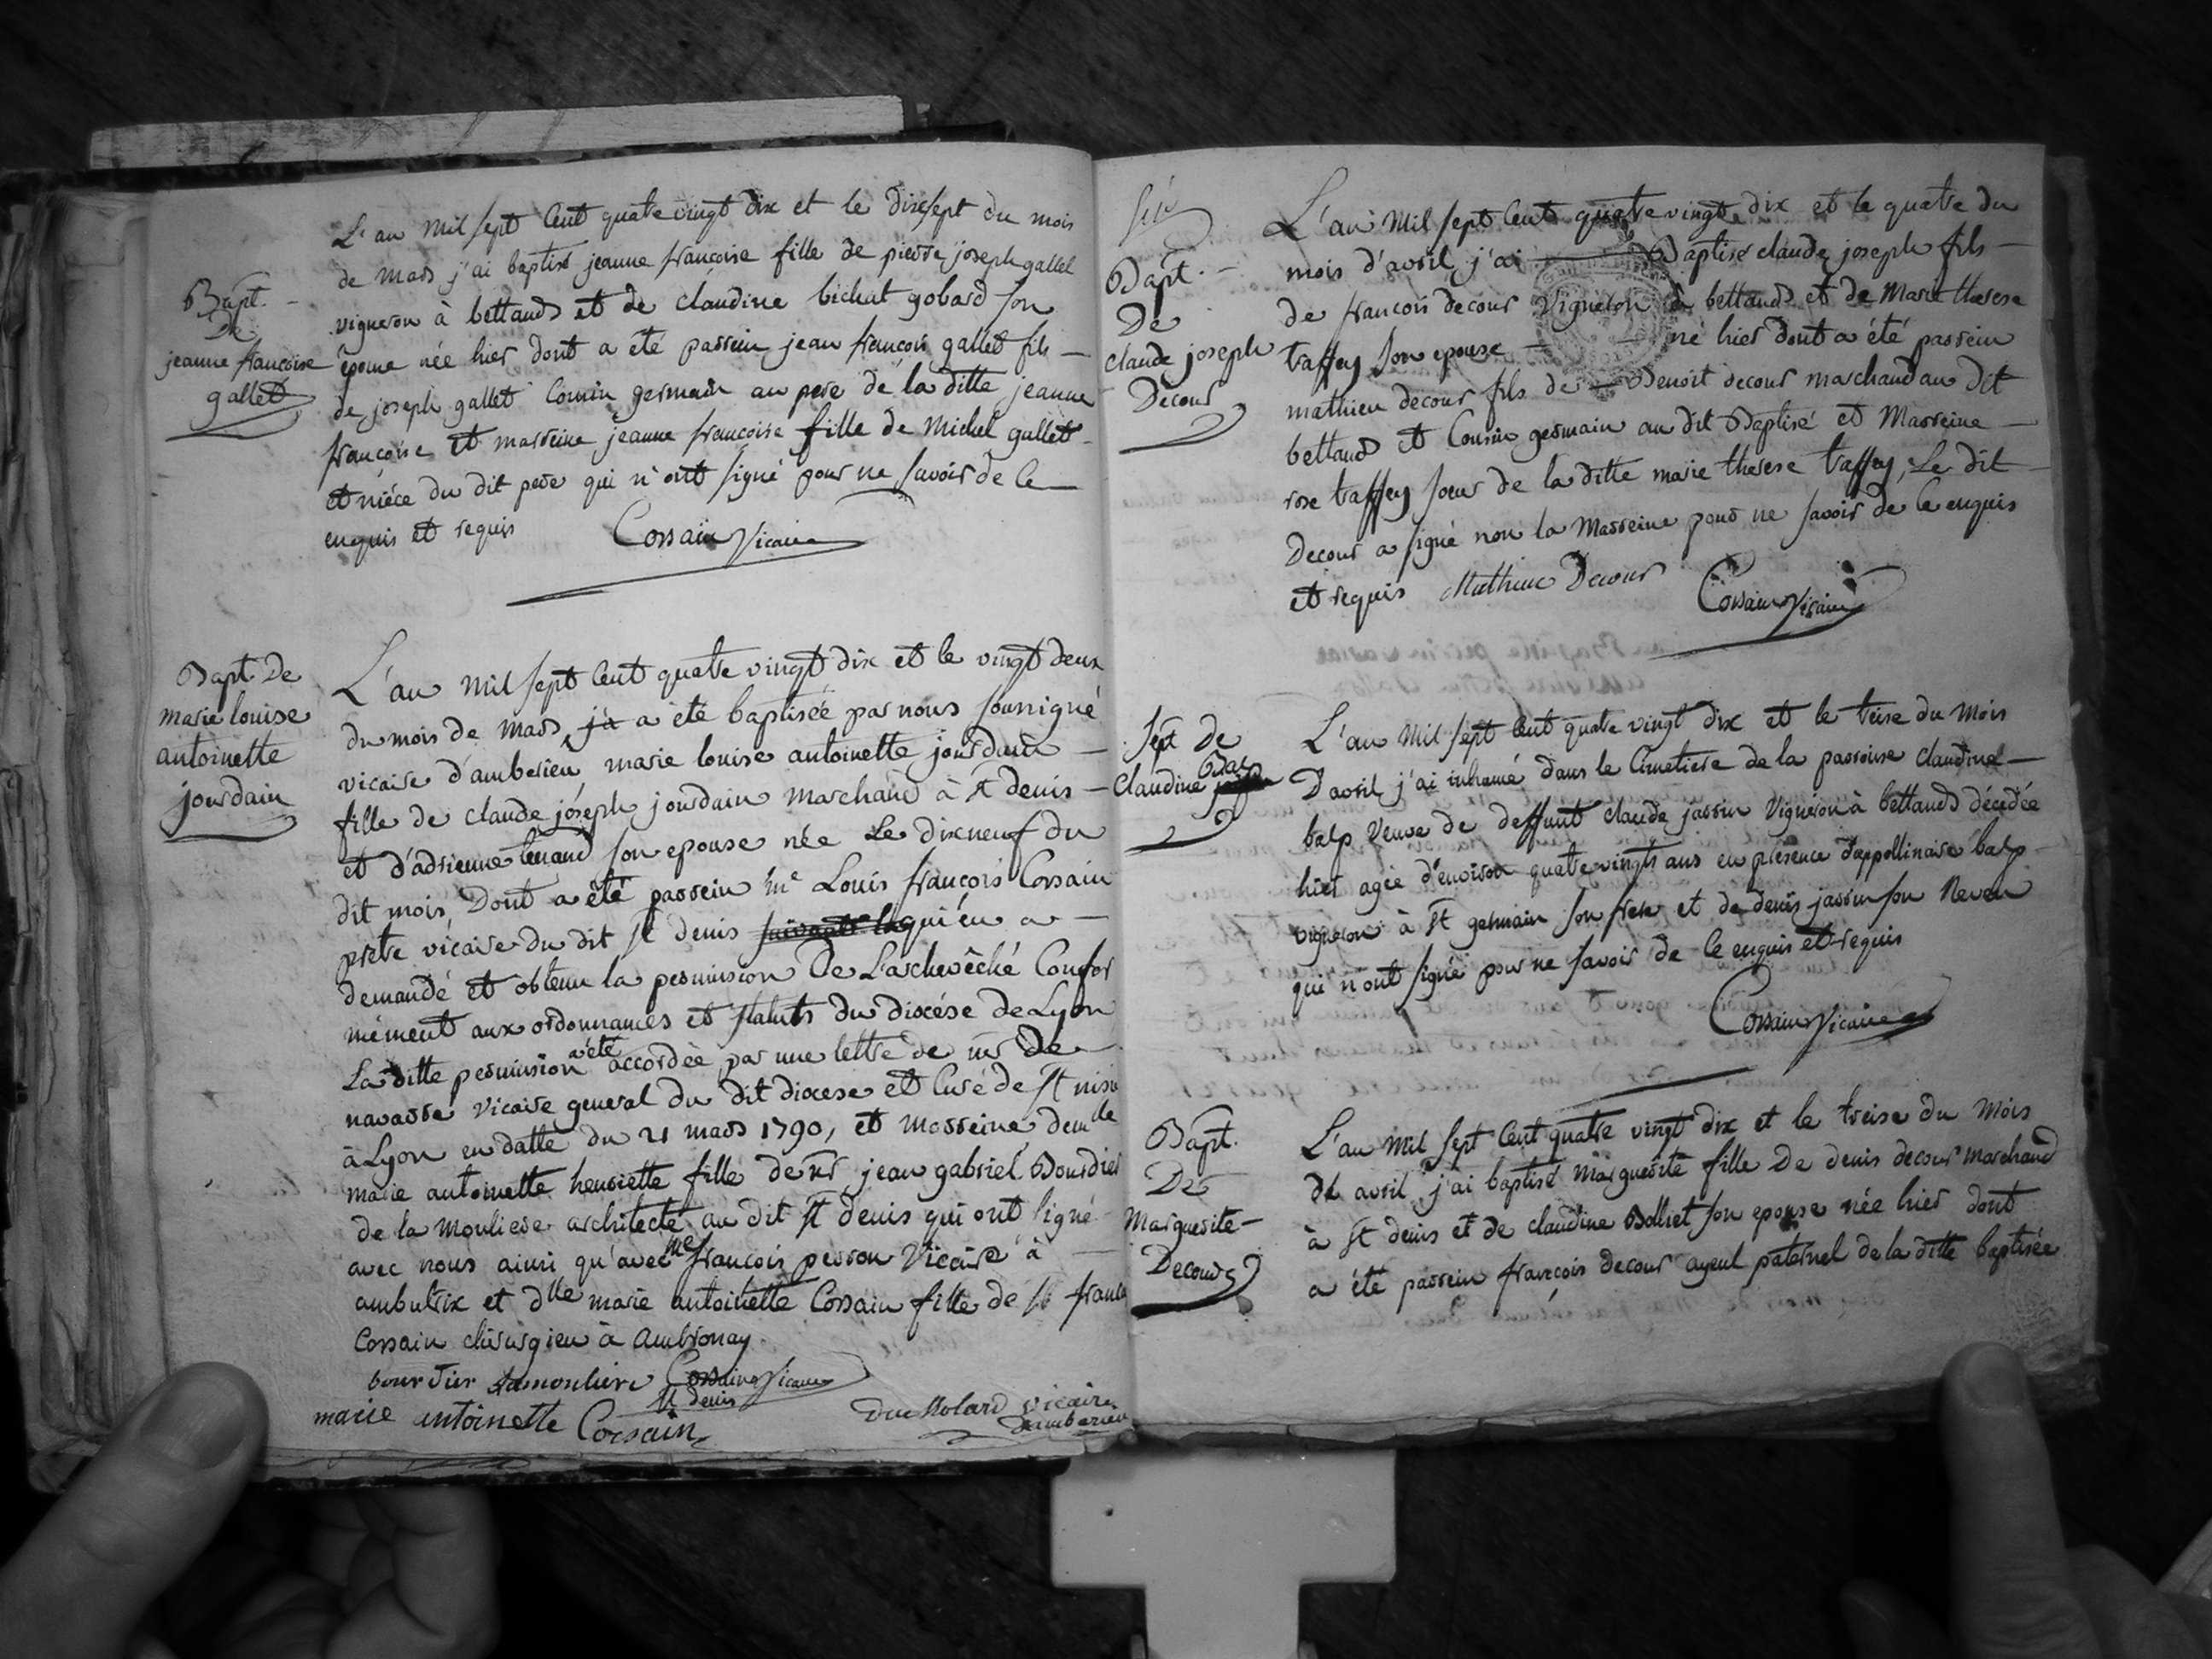 Bapt.
De
jeanne francoise
gallet
L'an mil sept Cent quatre vingt dix et le dixsept du mois
de mars j'ai baptisé jeanne francoise fille de pierre joseph gallet
vigneron à bettand et de claudine bichat gobard son
épouse née hier dont a été parrein jean francois gallet fils
de joseph gallet Cousin germain au pere de la ditte jeanne
francoise et marreine jeanne francoise fille de Michel gallet
et niéce du dit pere qui n'ont signé pour ne savoir de ce
enquis et requis Corsain Vicaire
Bapt. De
marie louise
antoinette
jourdain
L'an mil sept Cent quatre vingt dix et le vingt deux
du mois de mars, j'a a été baptisée par nous soussigné
vicaire d'amberieu marie louise antoinette jourdain
fille de claude joseph jourdain marchand à St denis
et d'adrienne tenand son epouse née Le dixneuf du
dit mois, Dont a été parrein me Louis francois Corsain
prêtre vicaire du dit St denis qui en a
demandé et obtenu la permission De L'archevêché Confor
mément aux ordonnances et statuts du diocése de Lyon
La ditte permission a été accordée par une lettre de mr De
navarre vicaire general du dit diocese et Curé de St nisi
à Lyon en datte du 21 mars 1790, et marreine demlle
marie antoinette henriette fille de sr jean gabriel Bourdier
de la mouliere architecte au dit St denis qui ont signé
avec nous ainsi qu'avec me francois perron Vicaire à
ambutrix et dlle marie antoinette Corsain fille de sr franc
Corsain chirurgien à ambronay.
bourdier Lamouliere Corsain Vicaire
St denis
marie antoinette Corsain
vicaire
d'amberieu
Bapt.
De
claude joseph
Decour
L'an mil sept Cent quatre vingt dix et le quatre du
mois d'avril j'ai Baptisé claude joseph fils
de francois decour Vigneron à bettand et de Marie therese
traffey son epouse né hier dont a été parrein
mathieu decour fils de Benoit decour marchand au dit
bettand et Cousin germain au dit Baptisé et Marreine
rose traffey soeur de la ditte marie therese traffey, Le dit
Decour a signé non la Marreine pour ne savoir de ce enquis
et requis Mathieu Decour Corsain Vicaire
Sept de
Claudine Balp
L'an mil sept Cent quatre vingt dix et le treise du mois
D'avril j'ai inhumé dans le Cimetiere de la parroisse claudine
balp Veuve de deffunt claude jassin Vigneron à bettand décédée
hier agée d'environ quatre vingts ans en presence d'appollinaire balp
vigneron à St germain son frere et de denis jassin son Neveu
qui n'ont signé pour ne savoir de ce enquis et requis
Corsain Vicaire
Bapt.
De
Marguerite
Decour
L'an mil sept Cent quatre vingt dix et le treise du mois
de avril j'ai baptisé Marguerite fille De denis decour marchand
à St denis et de claudine Bolliet son epouse née hier dont
a été parrein francois decour ayeul paternel de la ditte baptisée